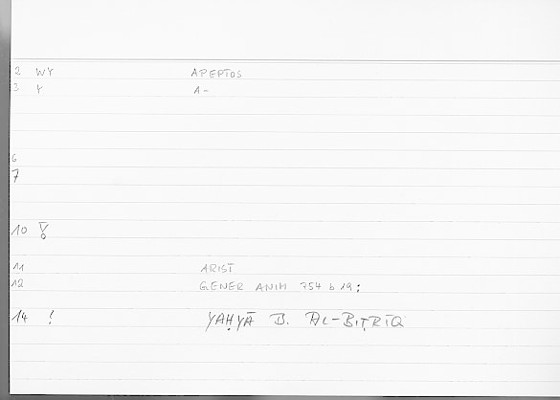 2 WY APEPTOS
3 Y A-
6
7
10
11 ARIST
12 GENER ANIM 754 b 19:
14 ! YAḤYĀ B. AL-BIṬRĪQ